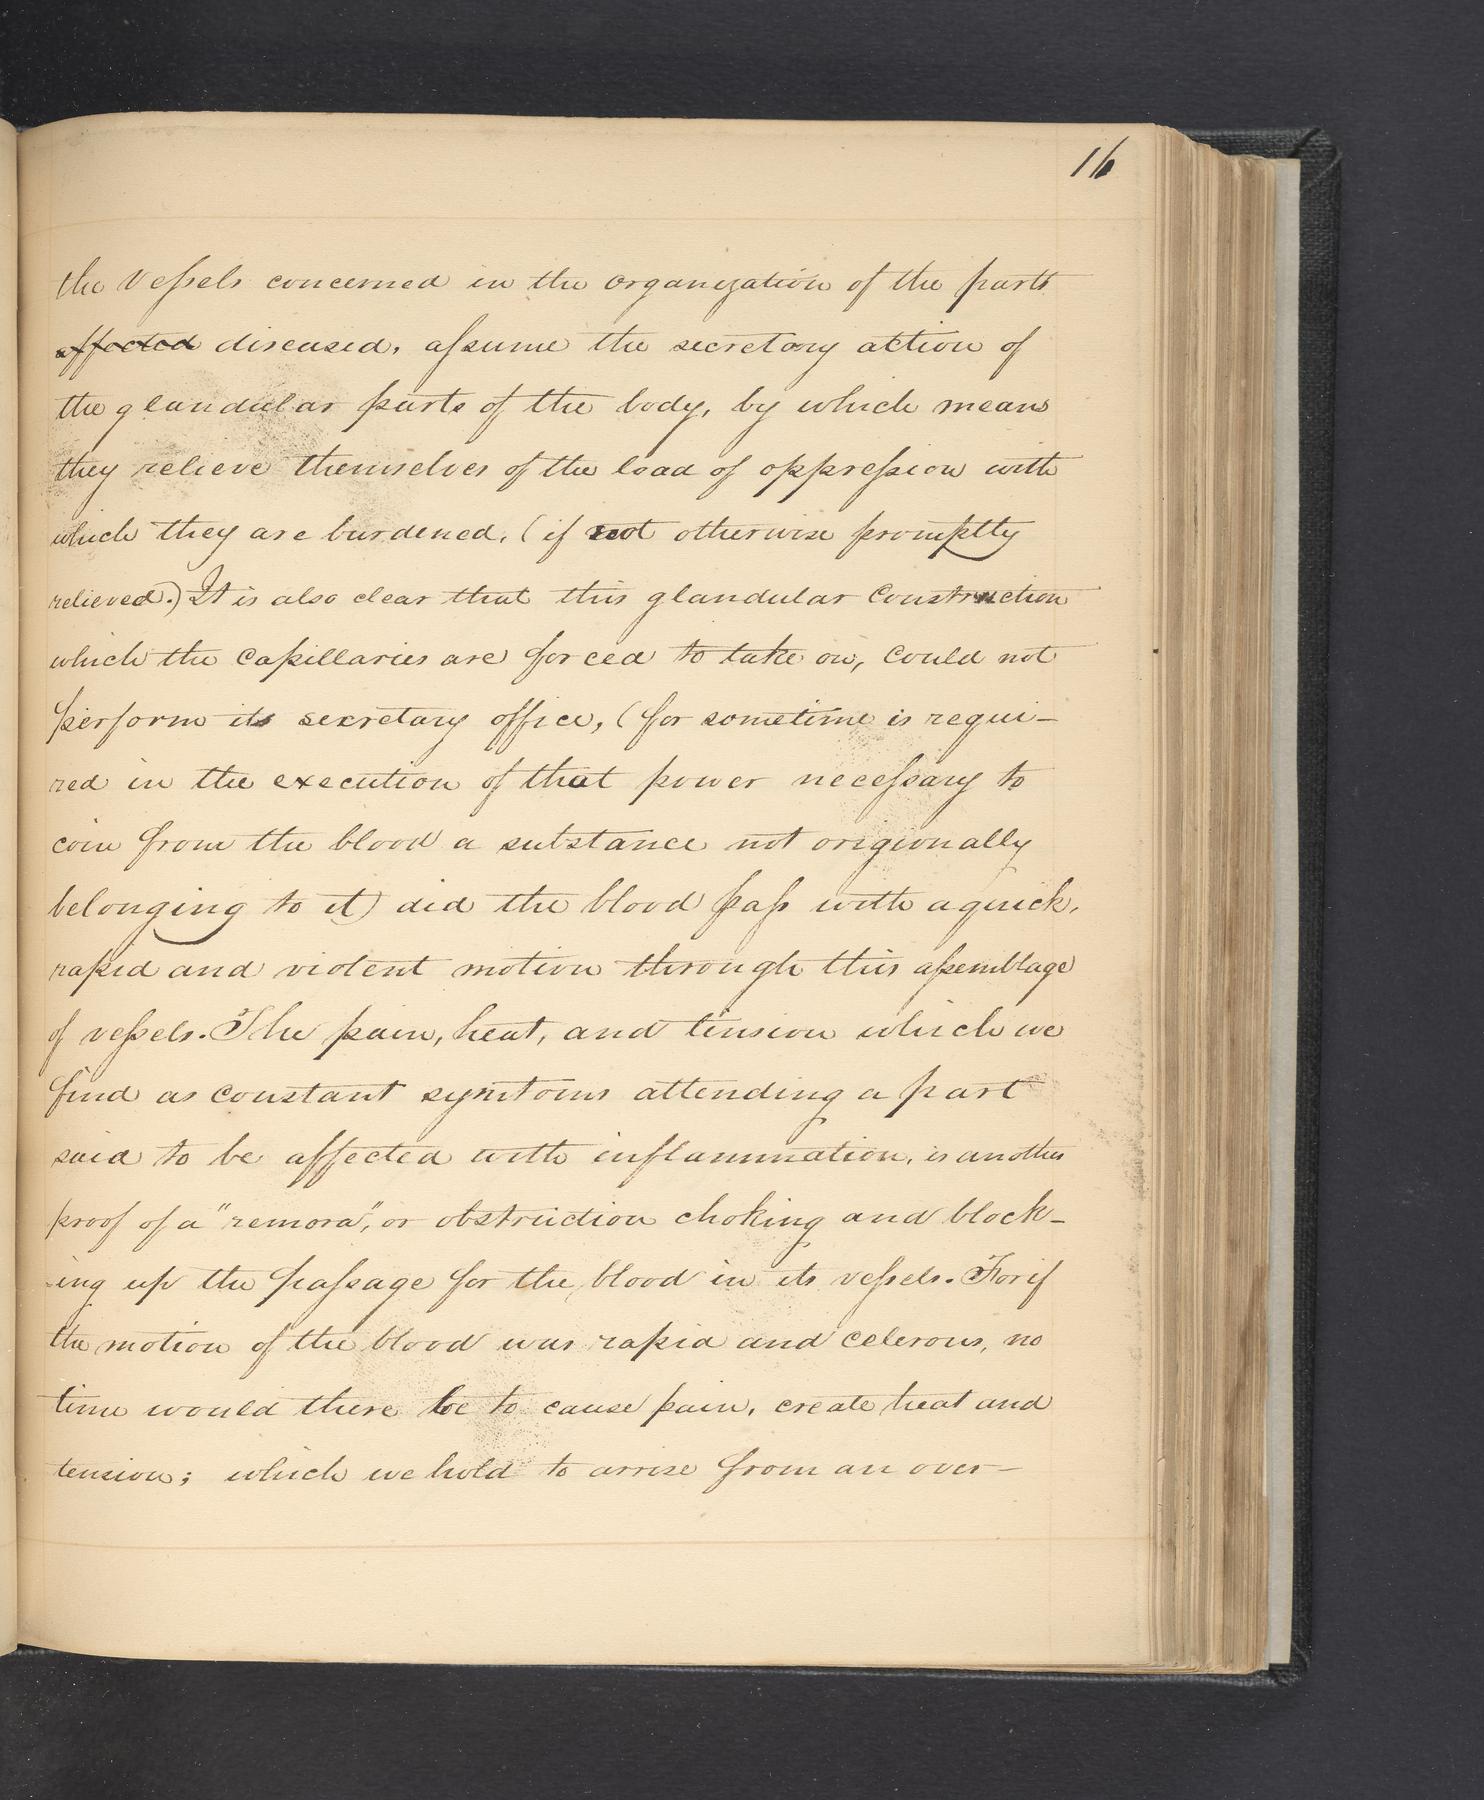 16
the Vessels concerned in the organization of the parts
affected diseased, assume the secretory action of
the glandular parts of the body, by which means
they relieve themselves of the load of oppression with
which they are burdened, (if not otherwise promptly
relieved.) It is also clear that this glandular construction
which the Capillaries are forced to take on, could not
perform its secretary office, (for sometime is requi-
red in the execution of that power necessary to
coin from the blood a substance not origionally
belonging to it) did the blood pass with a quick,
rapid and violent motion through this assemblage
of vessels. The pain, heat, and tension which we
find as constant symtoms attending a part
said to be affected with inflammation, is another
proof of a "remora", or obstruction choking and block-
-ing up the passage for the blood in its vessels. For if
the motion of the blood was rapid and celerous, no
time would there be to cause pain, create heat and
tension; which we hold to arrise from an over-